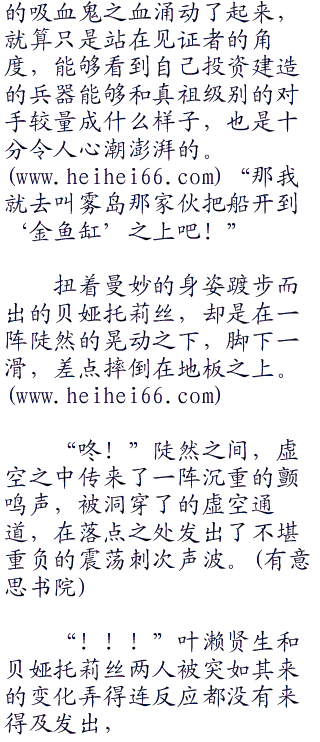 的吸血鬼之血涌动了起来，
就算只是站在见证者的角
度，能够看到自己投资建造
的兵器能够和真祖级别的对
手较量成什么样子，也是十
分令人心潮澎湃的。
(www.heihei66.com)“那我
就去叫雾岛那家伙把船开到
‘金鱼缸’之上吧！”
扭着曼妙的身姿踱步而
出的贝娅托莉丝，却是在一
阵陡然的晃动之下，脚下一
滑，差点摔倒在地板之上。
(www.heihei66.com)
“咚！”陡然之间，虚
空之中传来了一阵沉重的颤
鸣声，被洞穿了的虚空通
道，在落点之处发出了不堪
重负的震荡刺次声波。(有意
思书院)
“！！！”叶濑贤生和
贝娅托莉丝两人被突如其来
的变化弄得连反应都没有来
得及发出，